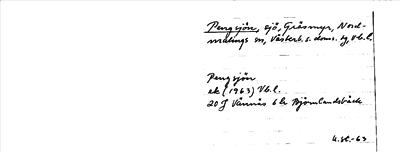 Pengsjön, sjö, Gräsmyr, Nord-
malings sn, Västerb. s. doms. tg, Vb. l.
Pengsjön
ek (1963) Vb. l.
20 J Vännäs 6 b Bjömlandsbäck
4.st.-63